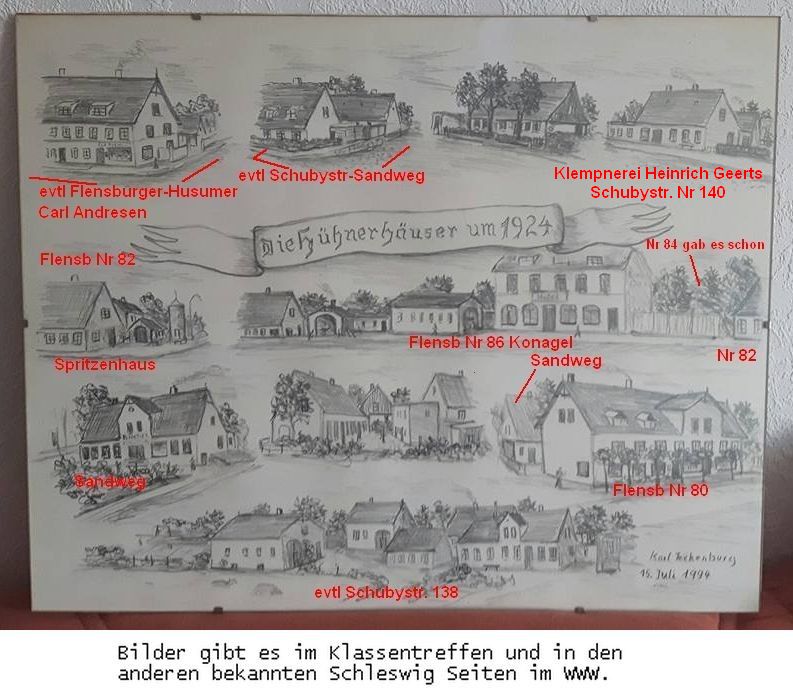 evtl Flensburger-Husumer
Carl Andresen
evtl Schubystr-Sandweg
Klempnerei Heinrich Geerts
Schubystr. Nr 140
Die Hühnerhäuser um 1924
Nr 84 gab es schon
Flensb Nr 82
Spritzenhaus
Flensb Nr 86 Konagel
Sandweg
Nr 82
Sandweg
Flensb Nr 80
evtl Schubystr. 138
Karl
15. Juli 1994
Bilder gibt es im Klassentreffen und in den
anderen bekannten Schleswig Seiten im WWW.